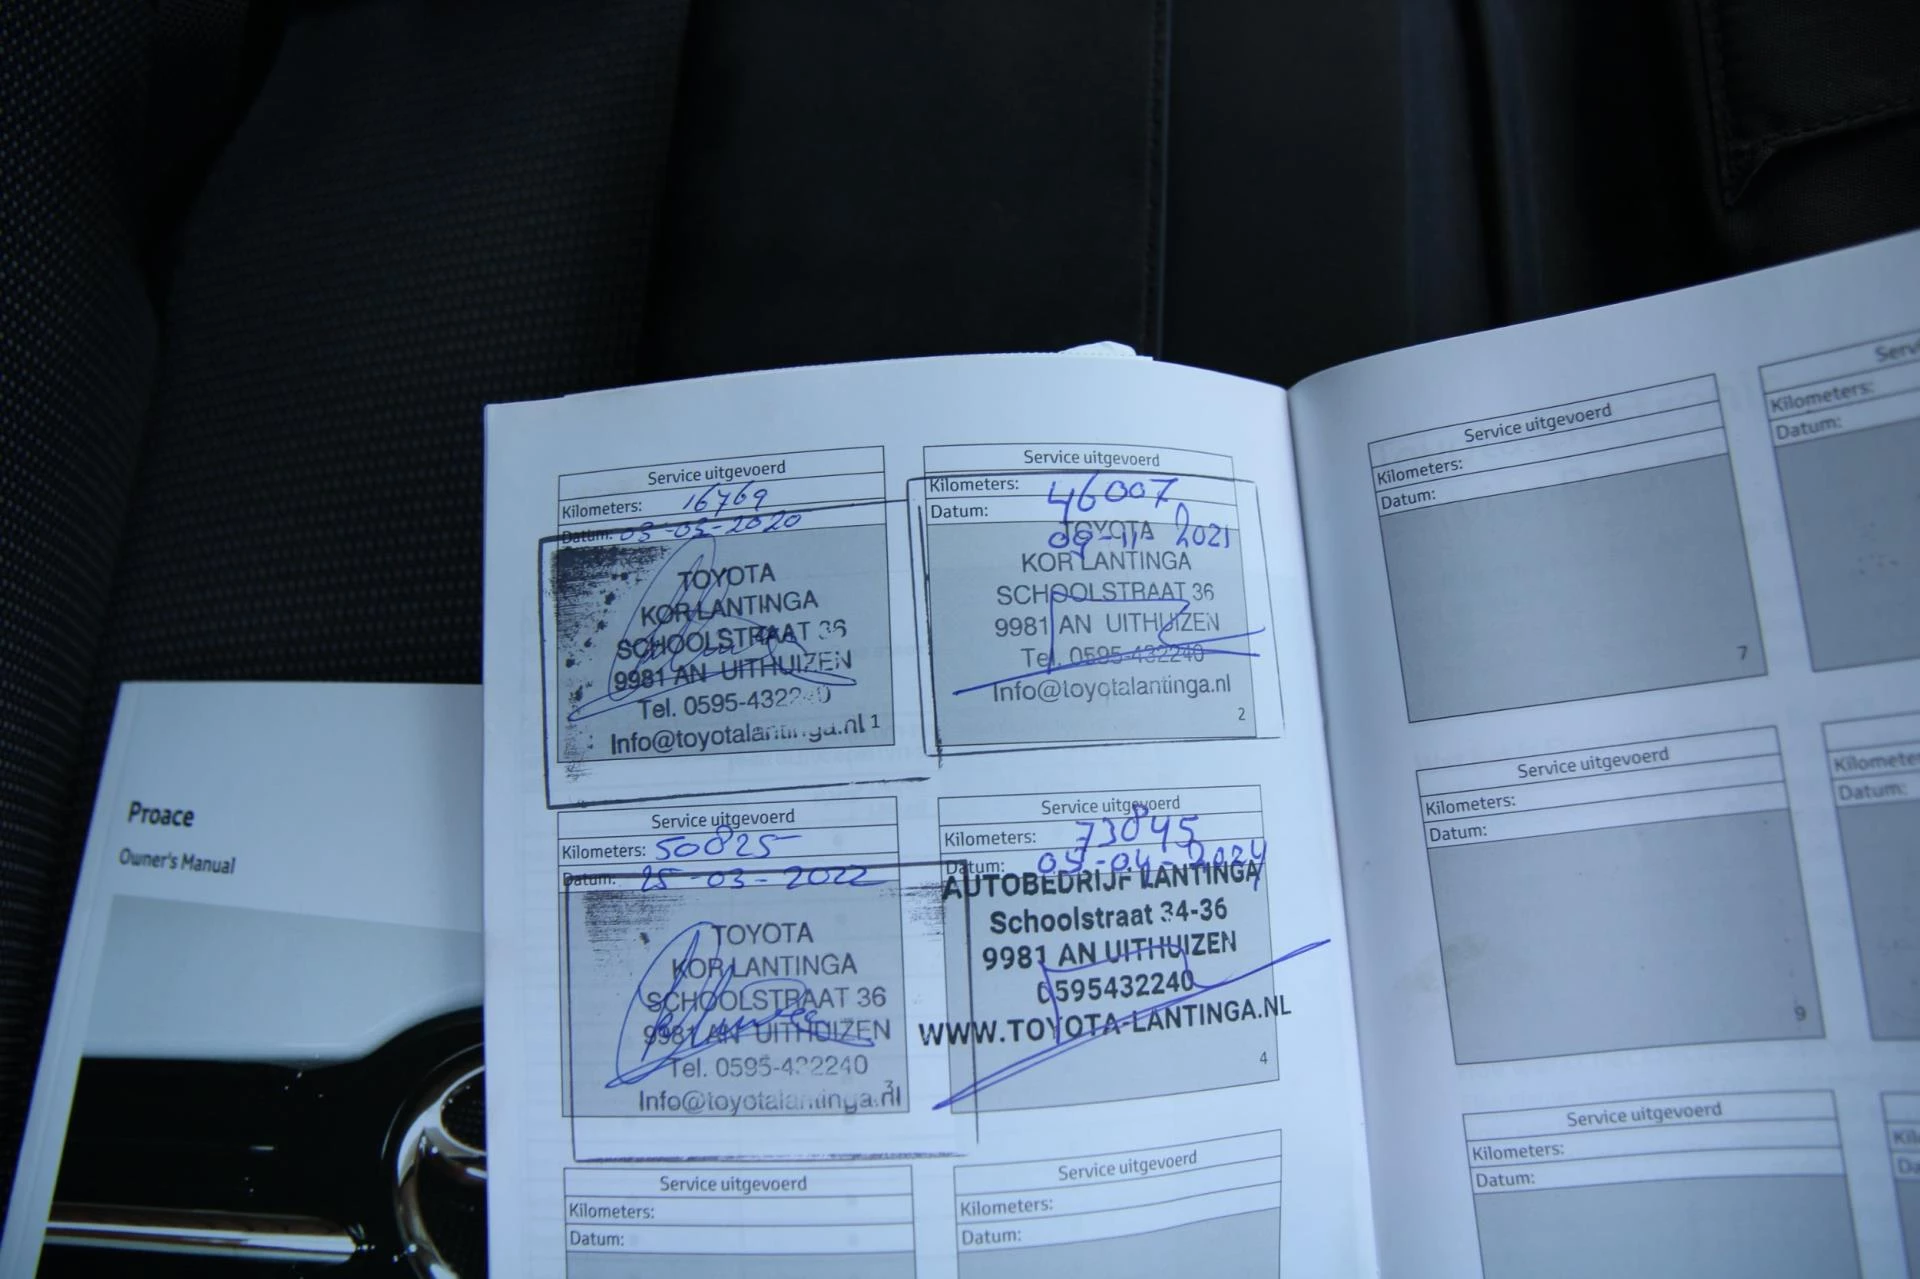 Service uitgevoerd
Kilometers: 16769
Datum: 03-03-2020
TOYOTA
KOR LANTINGA
SCHOOLSTRAAT 36
9981 AN UITHUIZEN
Tel. 0595-432240
Info@toyotalantinga.nl
1
Service uitgevoerd
Kilometers: 46007
Datum: 09-11-2021
TOYOTA
KOR LANTINGA
SCHOOLSTRAAT 36
9981 AN UITHUIZEN
Tel. 0595-432240
Info@toyotalantinga.nl
2
Service uitgevoerd
Kilometers: 50825
Datum: 25-03-2022
TOYOTA
KOR LANTINGA
SCHOOLSTRAAT 36
9981 AN UITHUIZEN
Tel. 0595-432240
Info@toyotalantinga.nl
3
Service uitgevoerd
Kilometers: 73845
Datum: 05-04-2024
AUTOBEDRIJF LANTINGA
Schoolstraat 34-36
9981 AN UITHUIZEN
0595432240
WWW.TOYOTA-LANTINGA.NL
4
Service uitgevoerd
Kilometers:
Datum:
Service uitgevoerd
Kilometers:
Datum:
Service uitgevoerd
Kilometers:
Datum:
7
Kilometers:
Datum:
Service uitgevoerd
Kilometers:
Datum:
9
Datum:
Service uitgevoerd
Kilometers:
Datum:
Proace
Owner's Manual